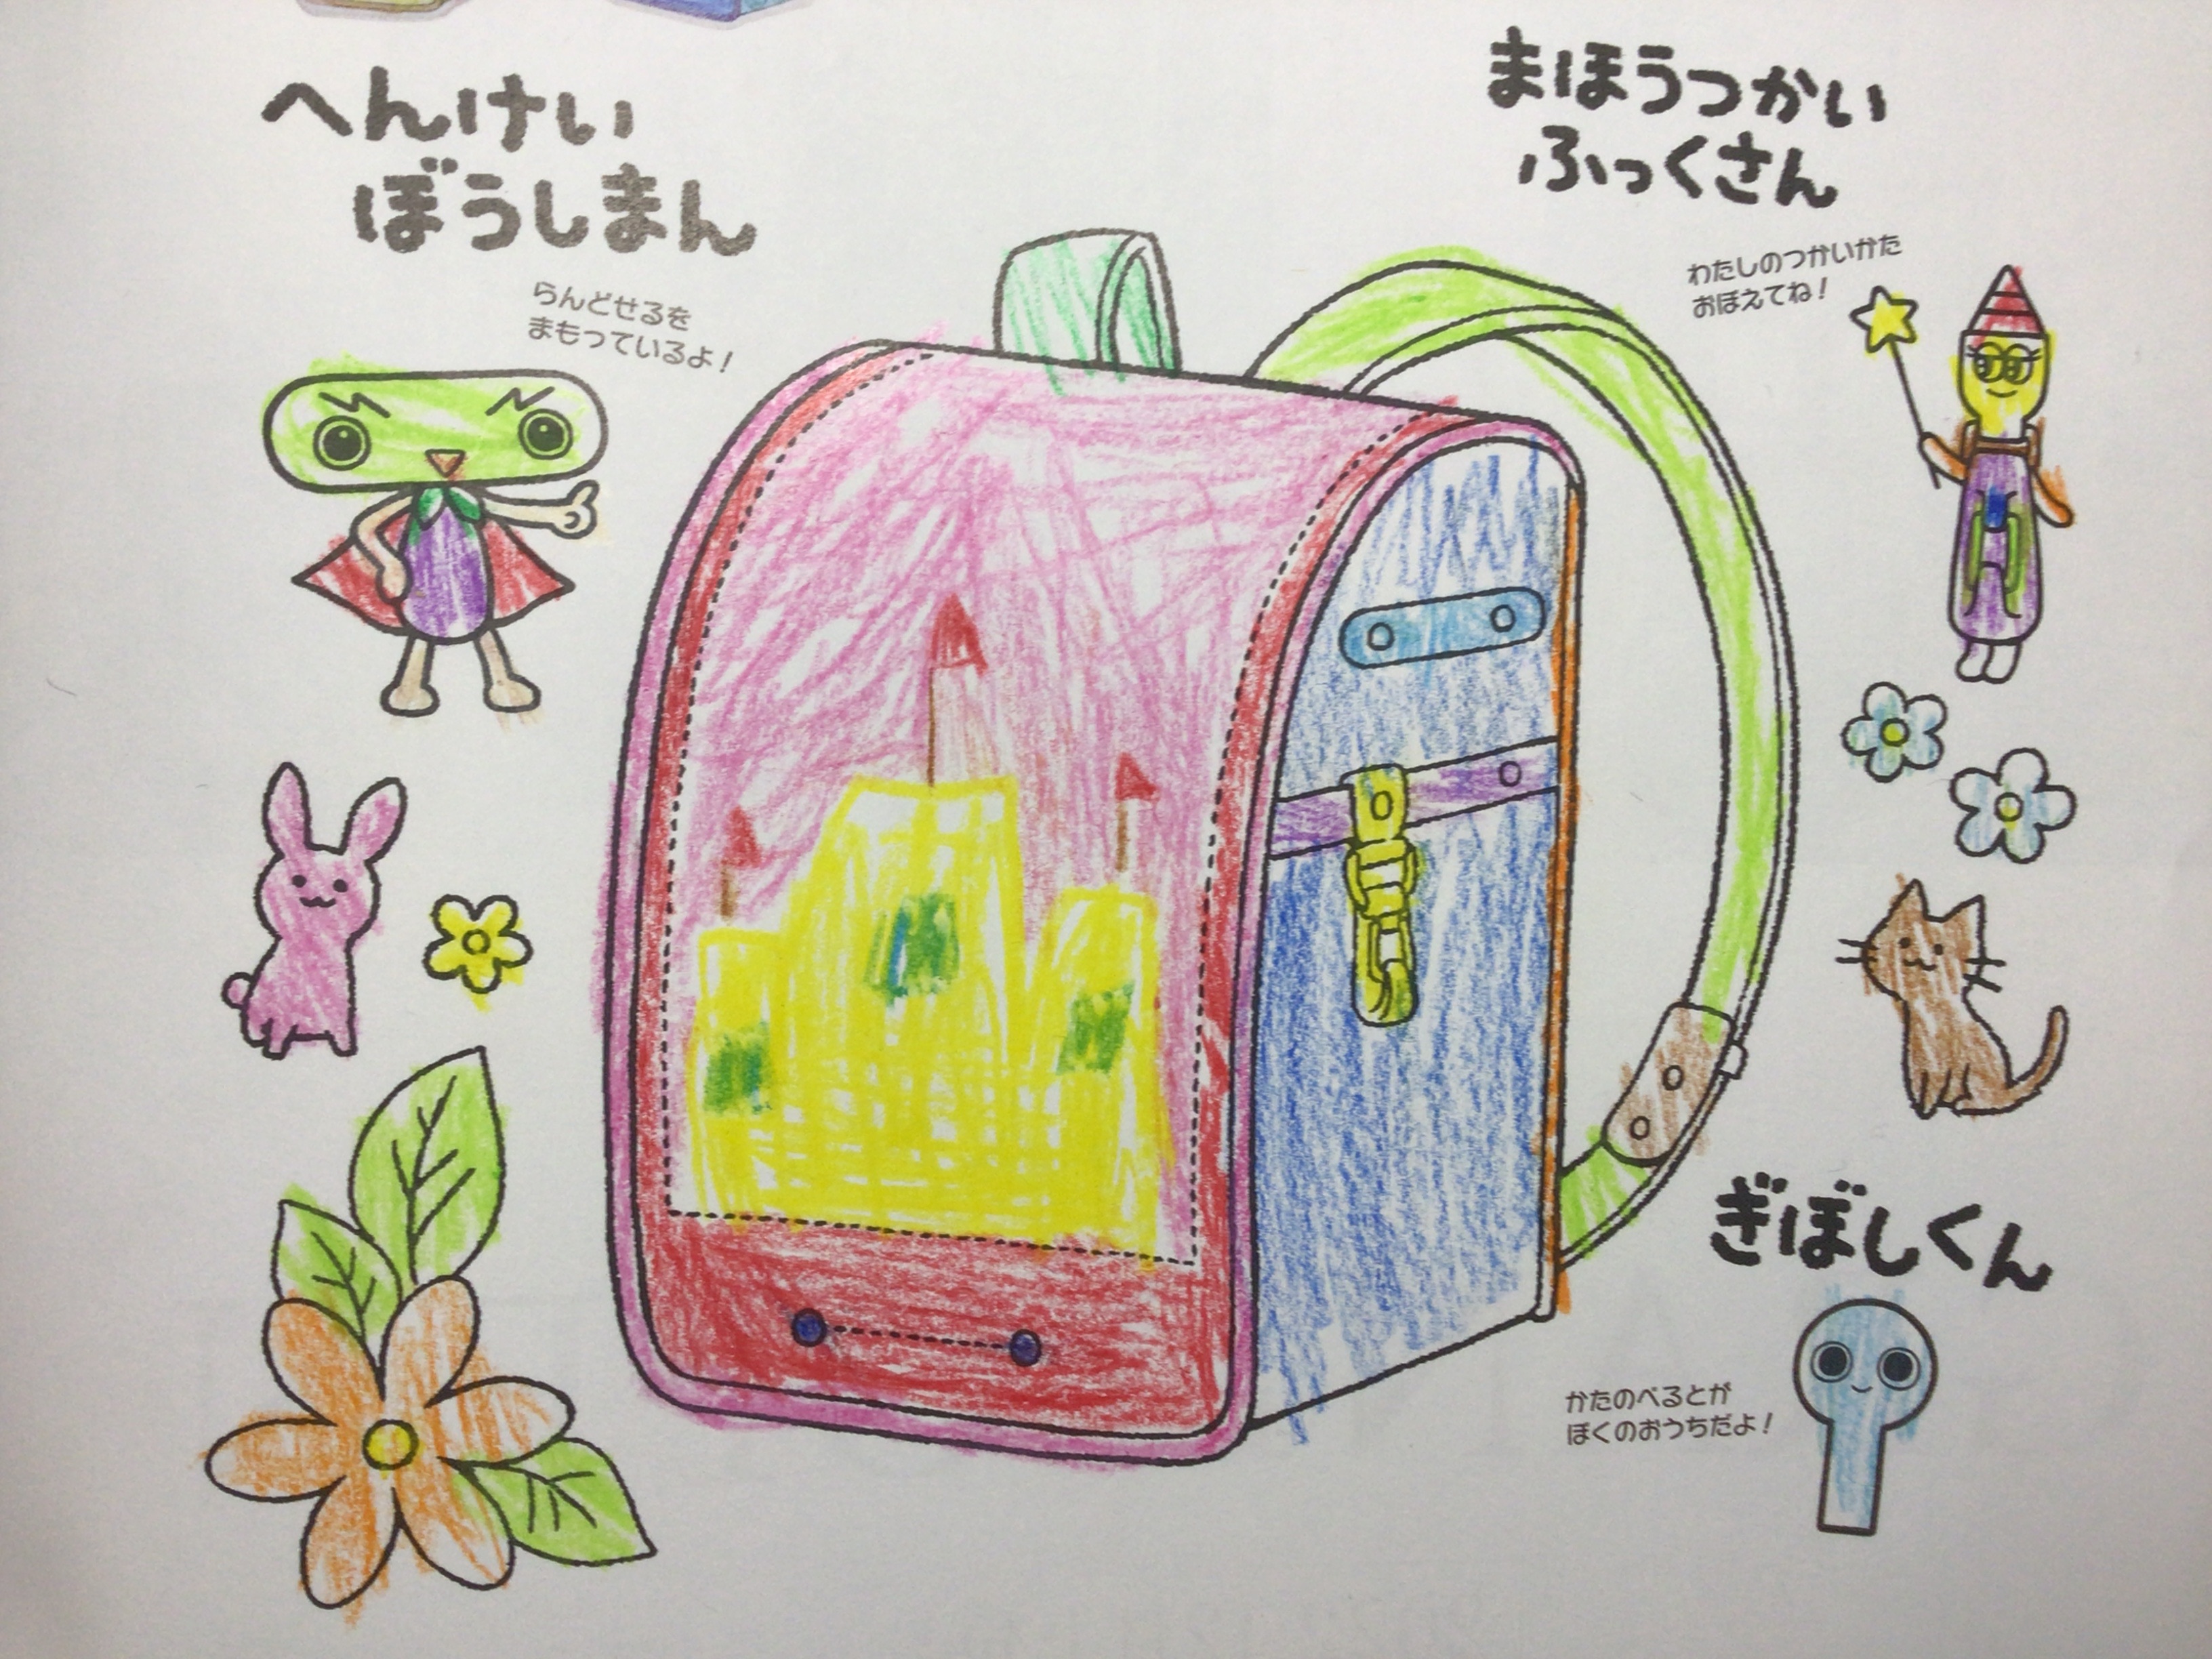 へんけい
ぼうしまん
らんどせるを
まもっているよ！
まほうつかい
ふっくさん
わたしのつかいかた
おぼえてね！
ぎぼしくん
かたのべるとが
ぼくのおうちだよ！